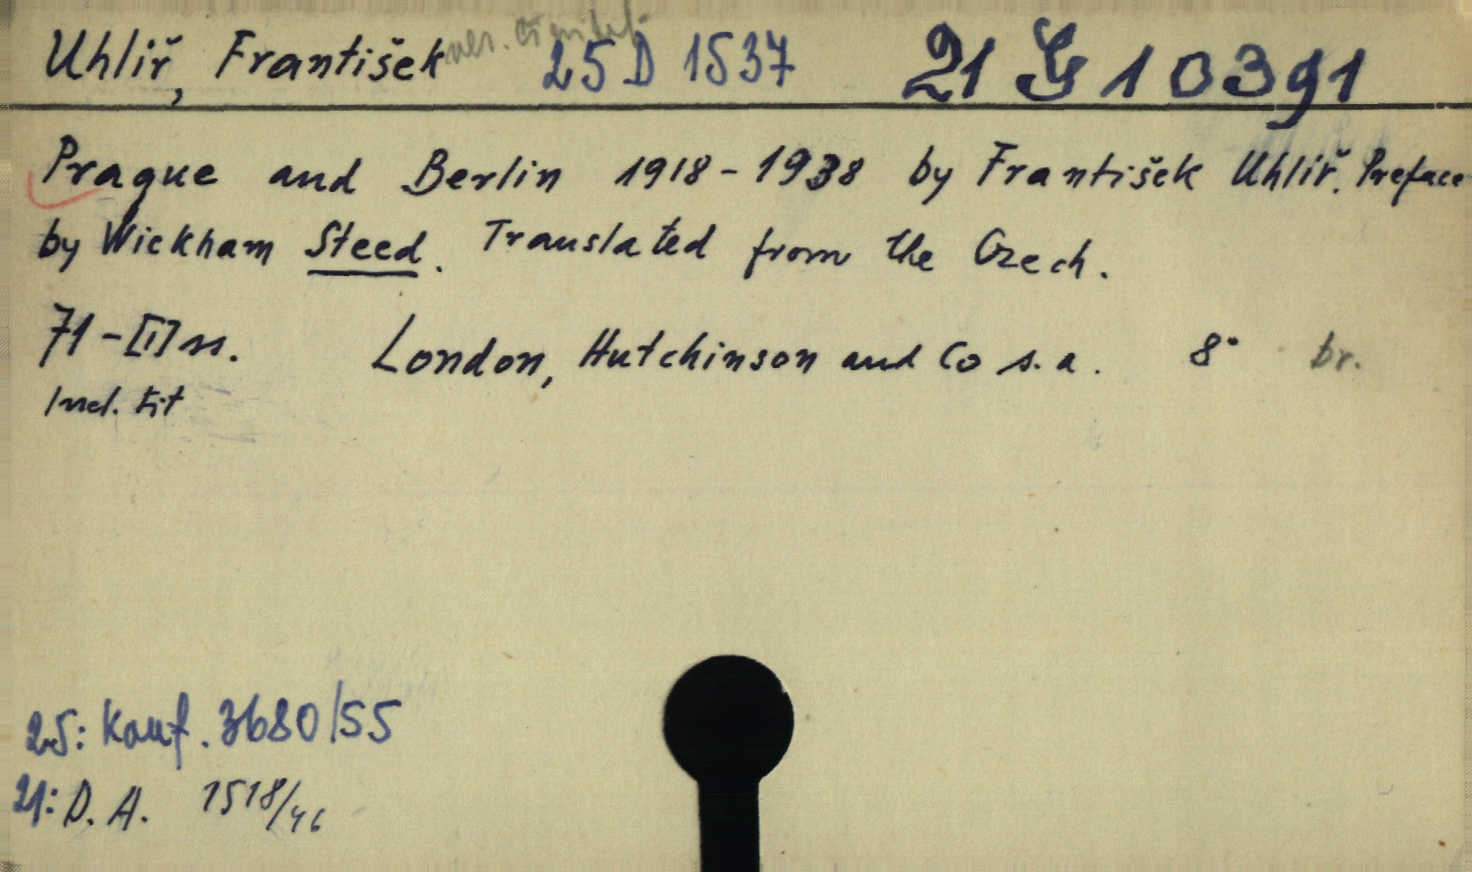 Uhliř, František 25 D 1537 21 G 10391
Prague and Berlin 1918-1938 by František Uhliř. Preface
by Wickham Steed. Translated from the Czech.
71-[1] s. London, Hutchinson and Co s.a. 8° br.
Incl. tit
25: Kauf. 3680/55
21: D. A. 1518/46